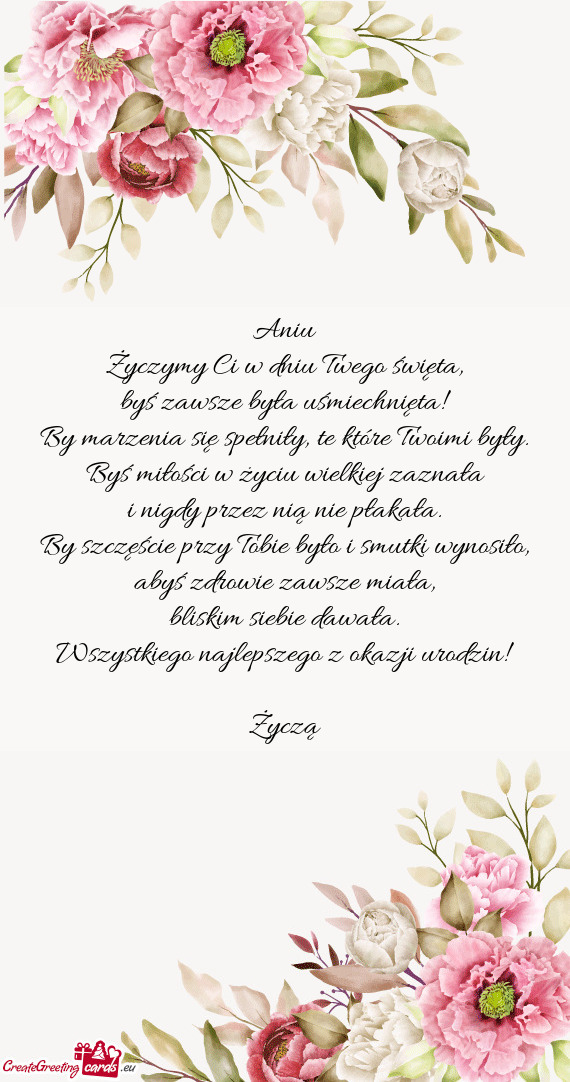 Aniu
Życzymy Ci w dniu Twego święta,
byś zawsze była uśmiechnięta!
By marzenia się spełniły, te które Twoimi były.
Byś miłości w życiu wielkiej zaznała
i nigdy przez nią nie płakała.
By szczęście przy Tobie było i smutki wynosiło,
abyś zdrowie zawsze miała,
bliskim siebie dawała.
Wszystkiego najlepszego z okazji urodzin!
Życzą
CreateGreeting cards .eu